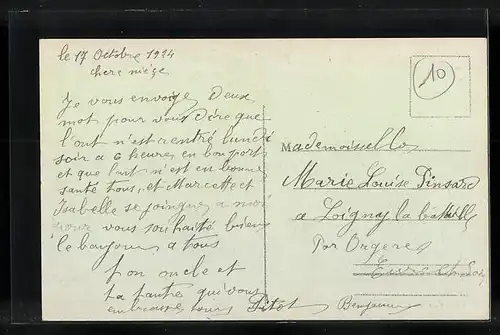 le 17 Octobre 1924
chere nièce
Je vous envoige Deux
mot pour vous Dire que
l'ont n'est rentré lundi
soir a 6 heures en bon port
et que lont n'est en bonne
santé tous, et Marcette et
Isabelle se joingues a moi
pour vous souhaité bien
le bonjour a tous
ton oncle et
ta tante qui vous
embrasse tous Pitot
10
Mademoiselle
Marie Louise Pinsard
a Loigny la bataille
Par Orgeres
Eure et Loir